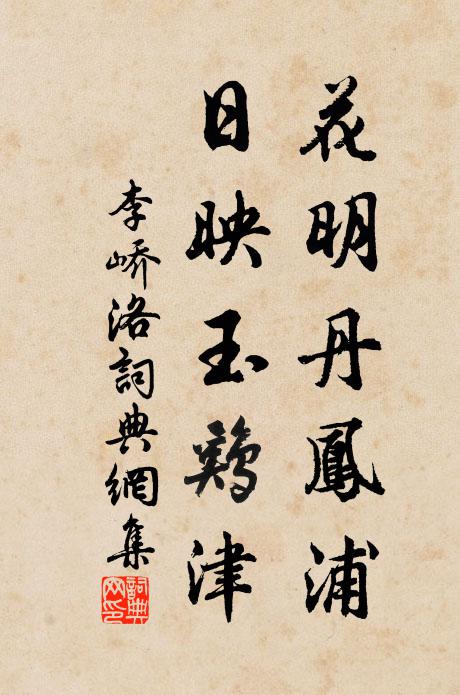 花明丹鳳浦
日映玉鷄津
李嶠洛詞典網集
詞典網印